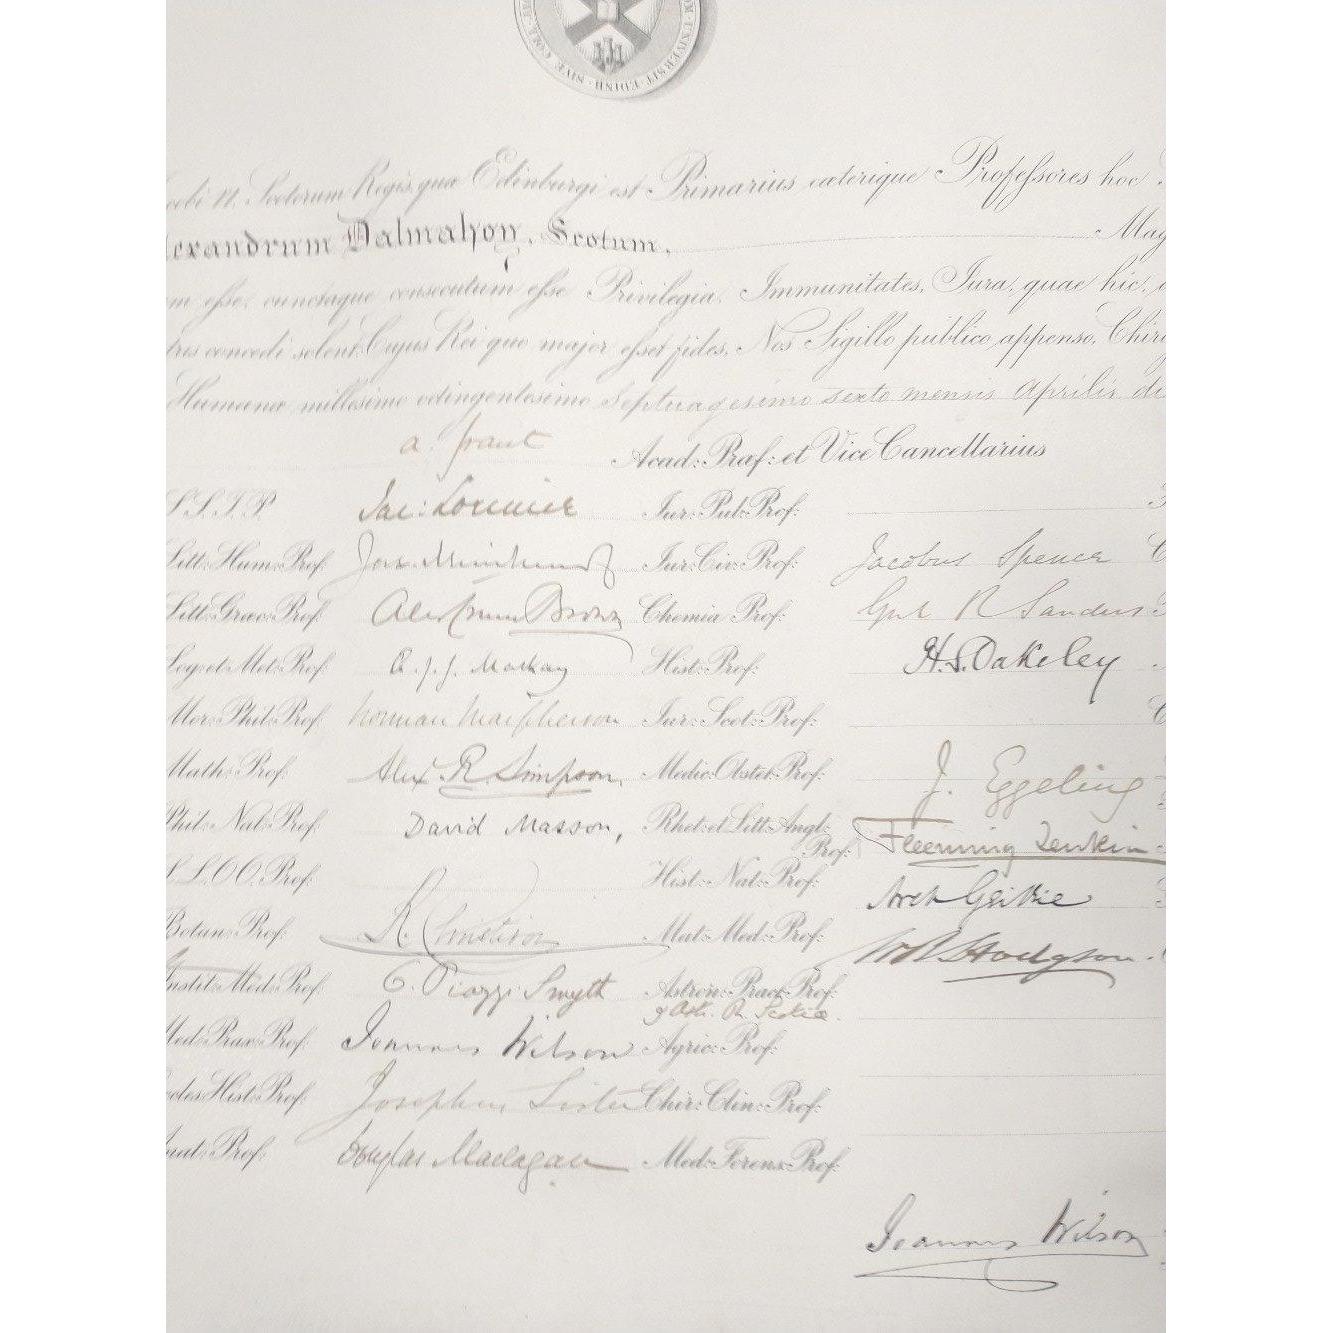 SIVE COLL · UNIVERSIT · EDINB ·
Scotorum Regis, quæ Edinburgi est Primarius cæterique Professores hoc
lexandrum Dalmahoy, Scotum, Mag
esse, cunctaque consecutum esse Privilegia, Immunitates, Jura, quae hic,
concedi solent. Cujus Rei quo major esset fides, Nos Sigillo publico appenso, Chir
Humanæ millesimo octingentesimo Septuagesimo sexto mensis Aprilis di
A. Grant Acad: Præf: et Vice Cancellarius
S.S.T.P. Jac: Lorimer Jur: Pub: Prof:
Litt: Hum: Prof: Jac. Muirhead Jur: Civ: Prof: Jacobus Spence C
Litt: Græc: Prof: Alex Crum Brown Chemiæ Prof: Gul R Sanders
Log: et Met: Prof: Æ. J. G. Mackay Hist: Prof: H. S. Oakeley
Mor: Phil: Prof: Norman Macpherson Jur: Scot: Prof: C
Math: Prof: Alexr. R. Simpson, Medic: Obstet: Prof: J. Eggeling
Phil: Nat: Prof: David Masson, Rhet: et Litt: Angl: Prof: Fleeming Jenkin
L.L.O.O. Prof: Hist: Nat: Prof: Arch Geikie
Botan: Prof: R. Christison Mat: Med: Prof: W B Hodgson
Instit: Med: Prof: C. Piazzi Smyth Astron: Pract: Prof:
Med: Prax: Prof: Joannes Wilson Agric: Prof:
Eccles: Hist: Prof: Josephus Lister Chir: Clin: Prof:
Anat: Prof: Douglas Maclagan Med: Forens: Prof:
Joannes Wilson